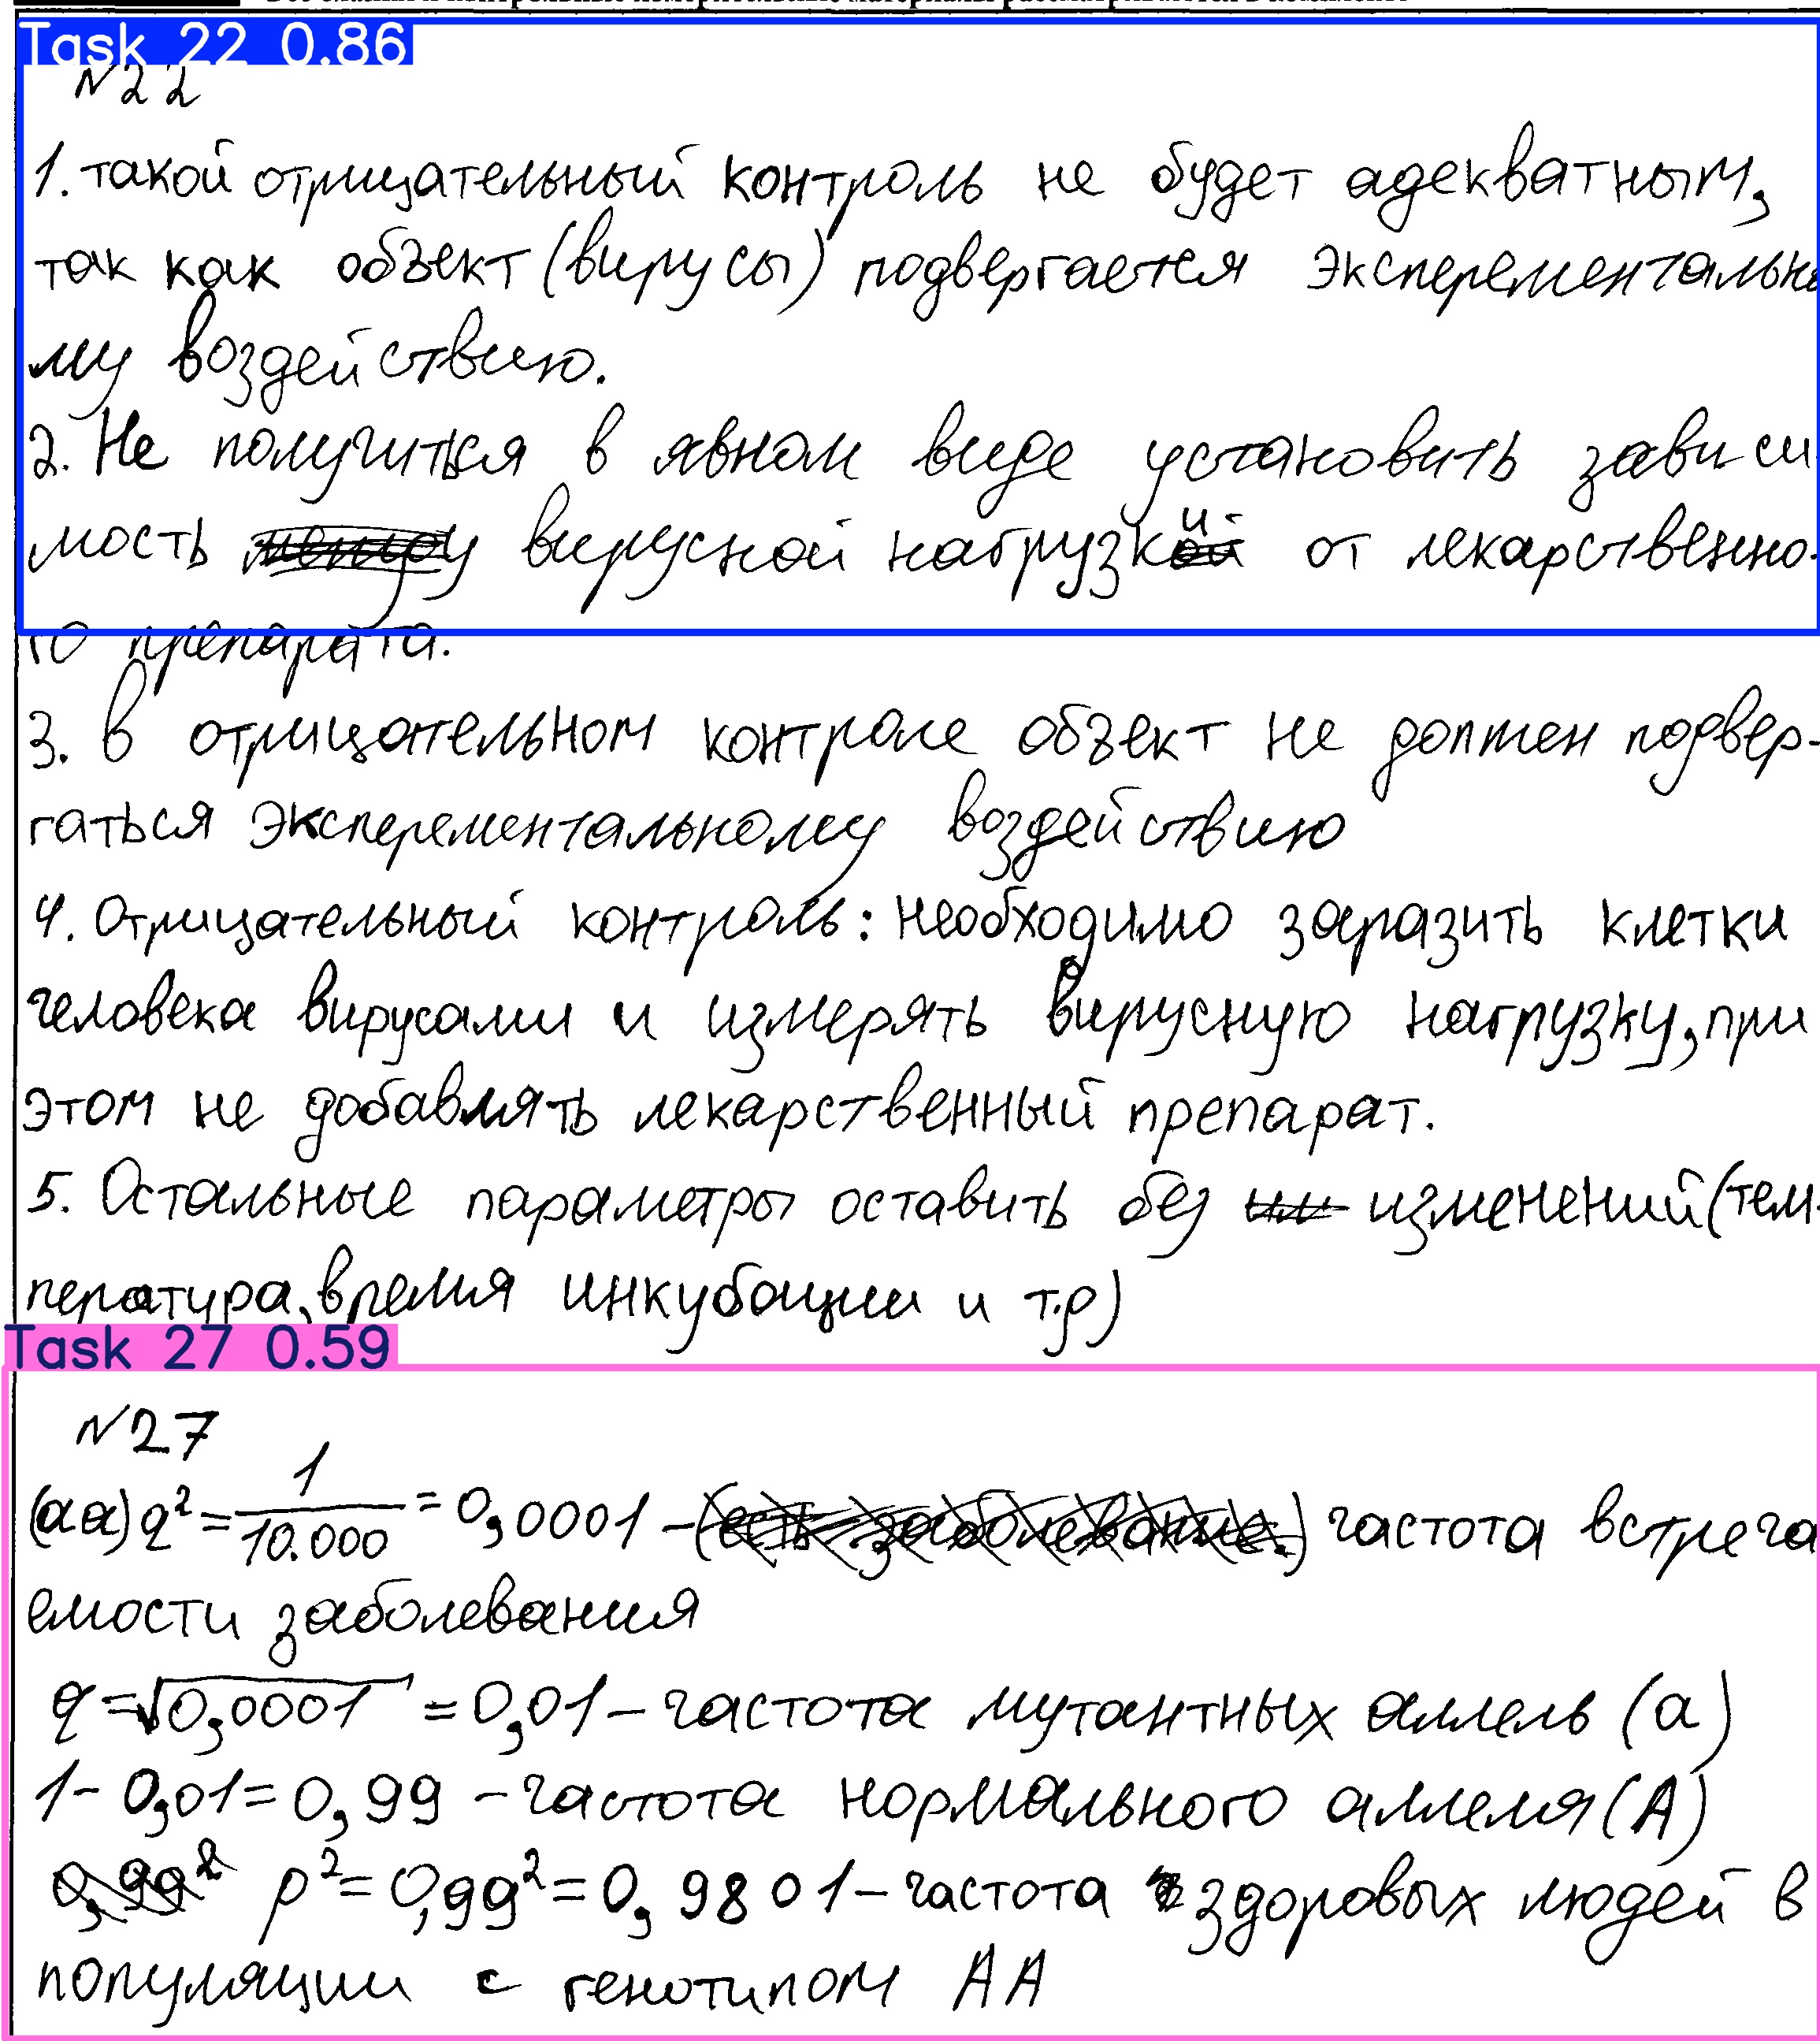 Task 22 0.86
№22
1. такой отрицательный контроль не будет адекватным,
так как объект (вирусы) подвергается эксперементально
му воздействию.
2. Не получиться в явном виде установить зависи
мость вирусной нагрузки от лекарственно-
го препарата.
3. В отрицательном контроле объект не должен подвер-
гаться эксперементальному воздействию
4. Отрицательный контроль: необходимо заразить клетки
человека вирусами и измерять вирусную нагрузку, при
этом не добавлять лекарственный препарат.
5. Остальные параметры оставить без изменений (тем-
пература, время инкубации и т.д)
Task 27 0.59
№27
(aa) q² = 1/10.000 = 0,0001 - частота встреча
емости заболевания
q = √0,0001 = 0,01 - частота мутантных аллель (a)
1 - 0,01 = 0,99 - частота нормального аллеля (A)
p² = 0,99² = 0,9801 - частота здоровых людей в
популяции с генотипом AA